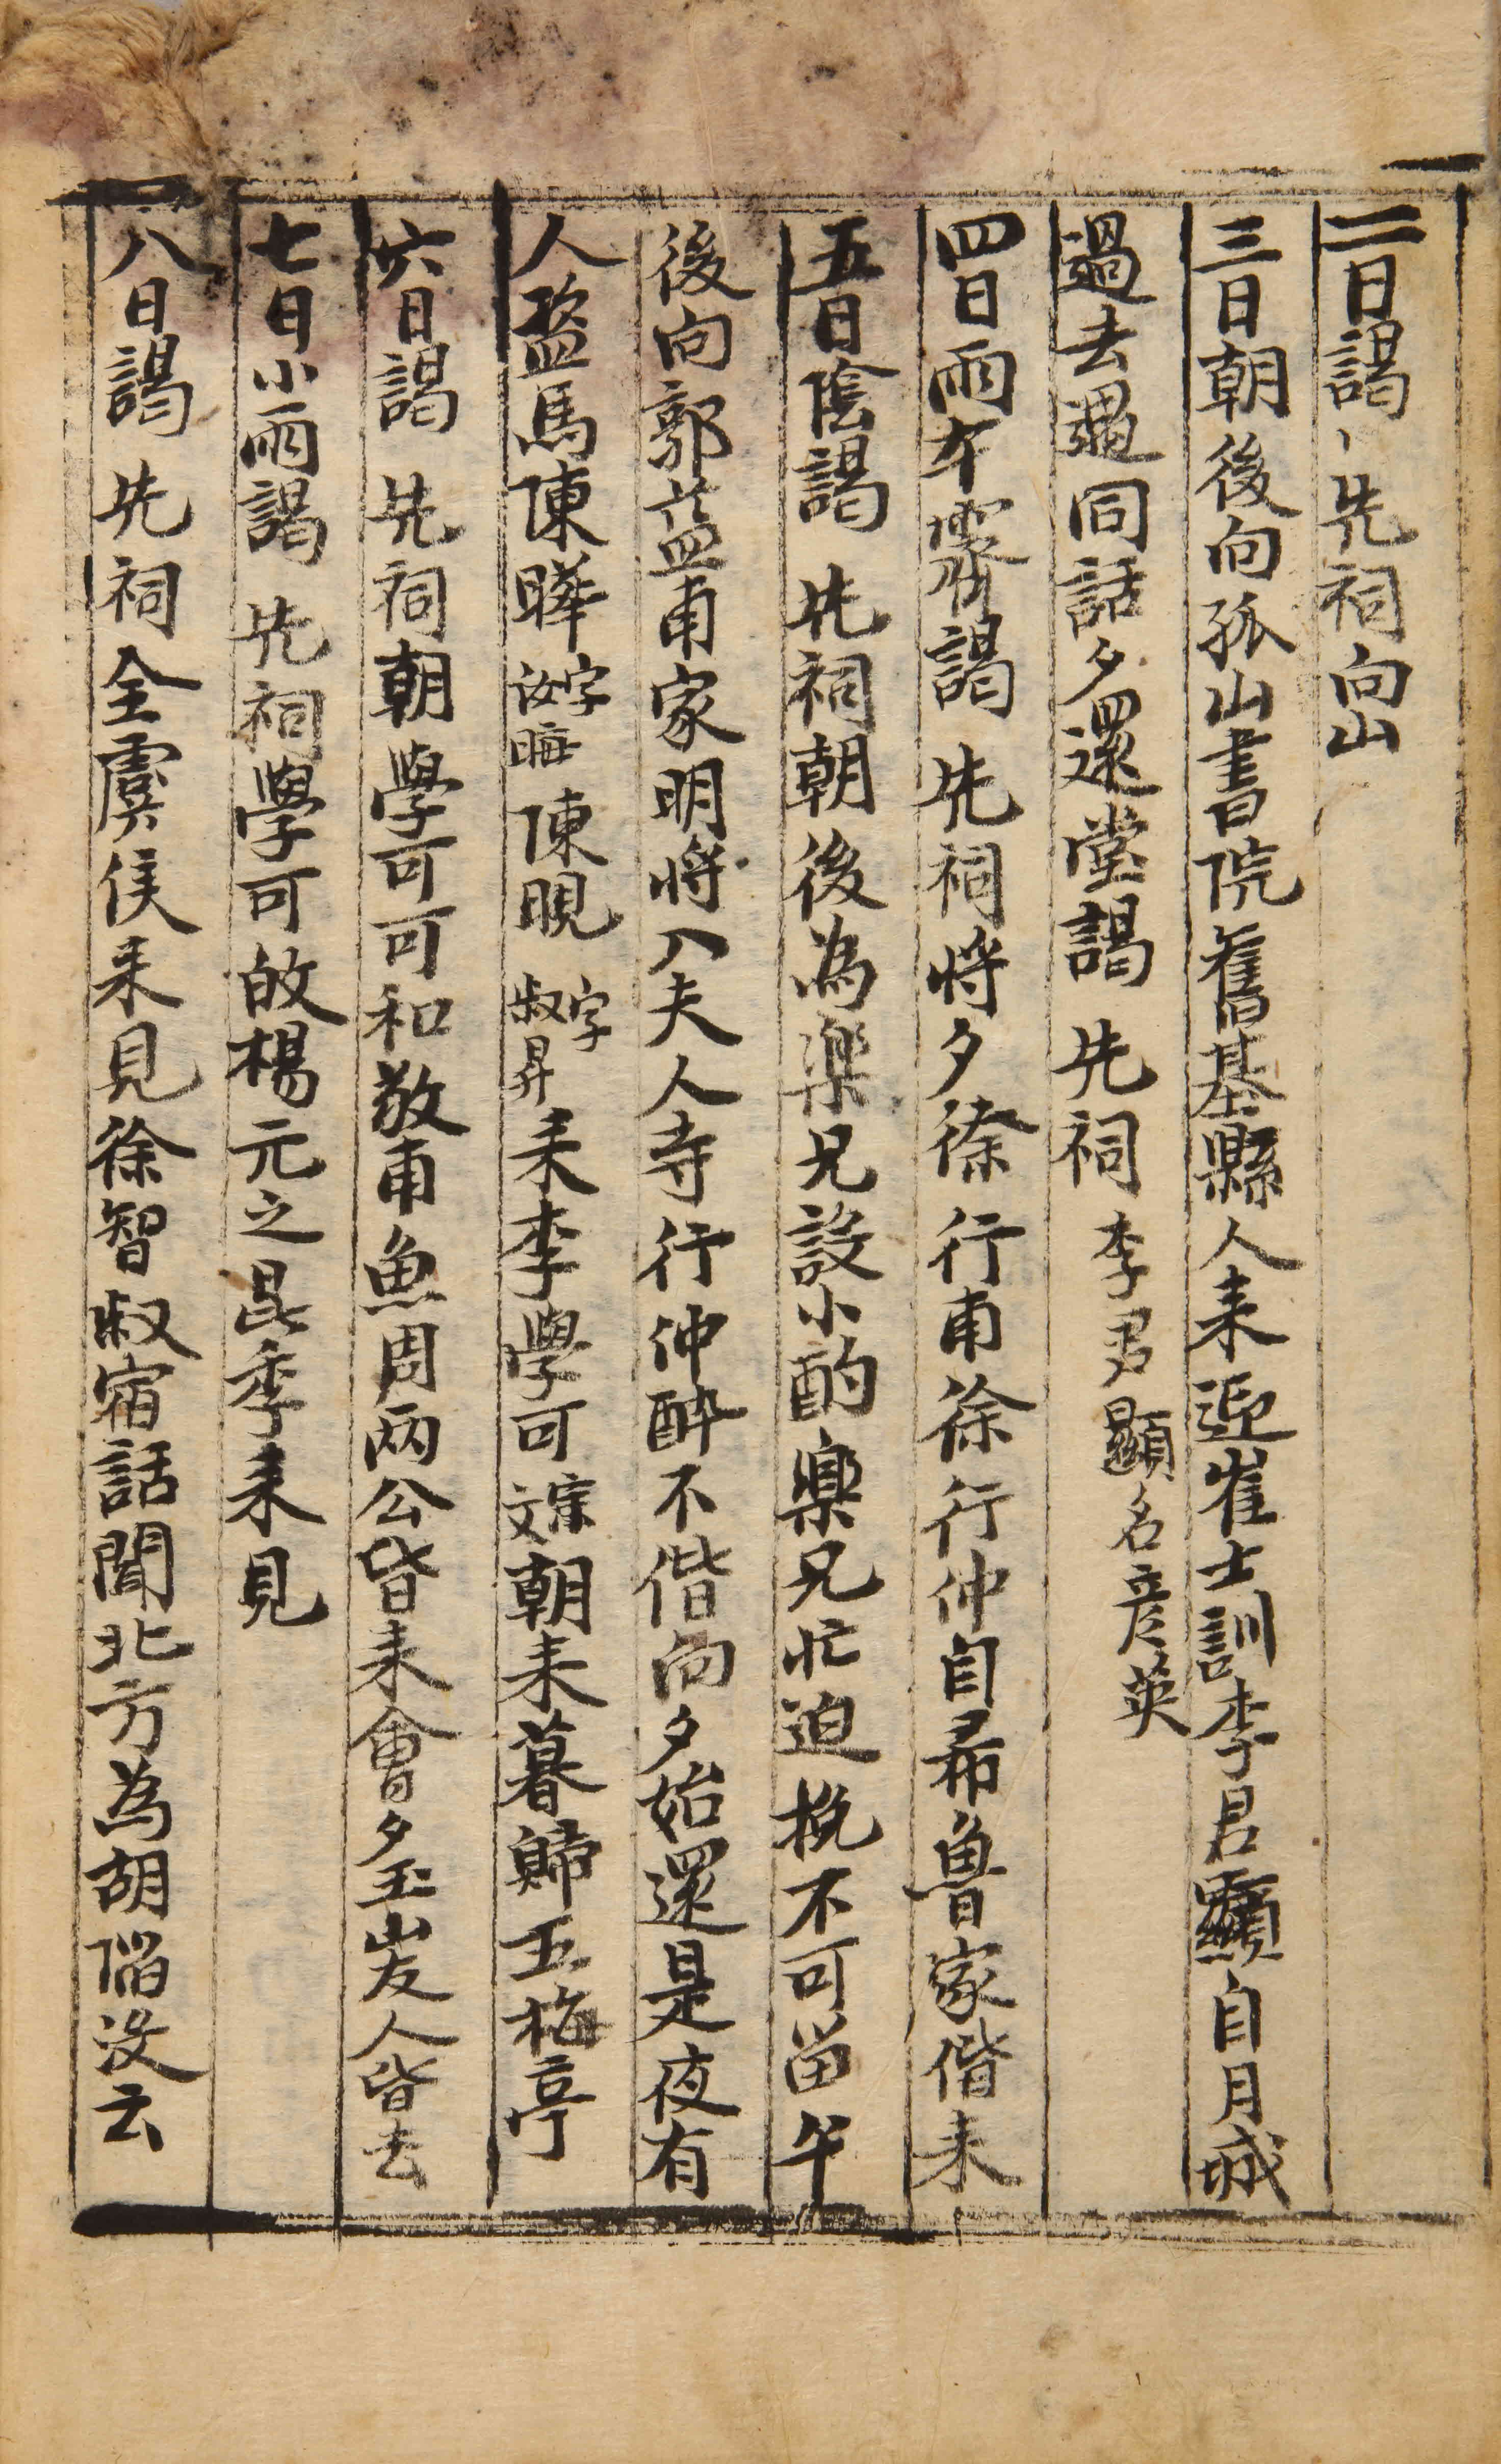 二日謁先祠向山
三日朝後向孤山書院舊基縣人来迎崔士訓李君顯自月城
過去邂同話夕還堂謁先祠李君顯名彦英
四日雨午霽謁先祠將夕徐行甫徐行仲自希魯家偕来
五日陰謁先祠朝後為樂兄設小酌樂兄忙迫挽不可留午
後向郭益甫家明將入夫人寺行仲醉不偕向夕始還是夜有
人盜馬陳曄字汝晦陳晛字叔昇来李學可文䆃朝来暮歸五梅亭
六日謁先祠朝學可可和敬甫魚周两公皆来會夕玉山友人皆去
七日小雨謁先祠學可故楊元之昆季来見
八日謁先祠全虞侯来見徐智叔宿話聞北方為胡陷没云